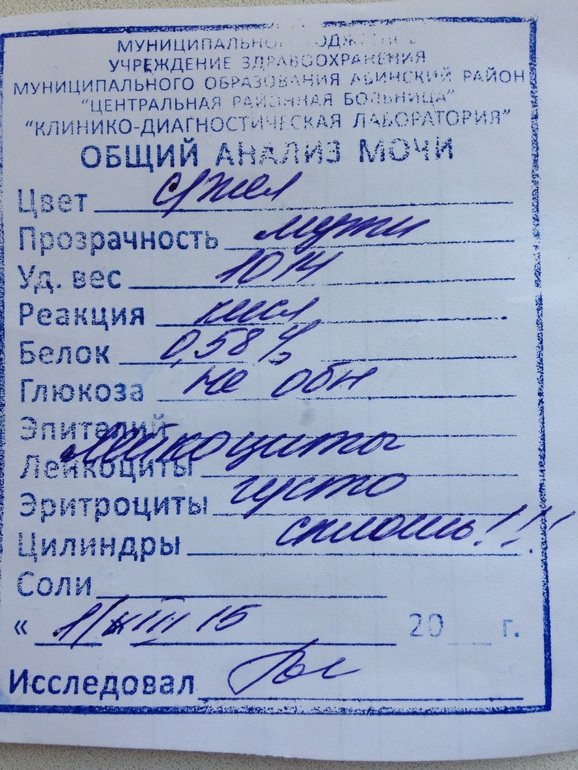 МУНИЦИПАЛЬНОЕ БЮДЖЕТНОЕ
УЧРЕЖДЕНИЕ ЗДРАВООХРАНЕНИЯ
МУНИЦИПАЛЬНОГО ОБРАЗОВАНИЯ АБИНСКИЙ РАЙОН
"ЦЕНТРАЛЬНАЯ РАЙОННАЯ БОЛЬНИЦА"
"КЛИНИКО-ДИАГНОСТИЧЕСКАЯ ЛАБОРАТОРИЯ"
ОБЩИЙ АНАЛИЗ МОЧИ
Цвет с/жел
Прозрачность мутн
Уд. вес 1014
Реакция кисл
Белок 0,58%
Глюкоза не обн
Эпителий
Лейкоциты лейкоциты
Эритроциты густо
Цилиндры сплошь!!!
Соли
« 15 20 г.
Исследовал